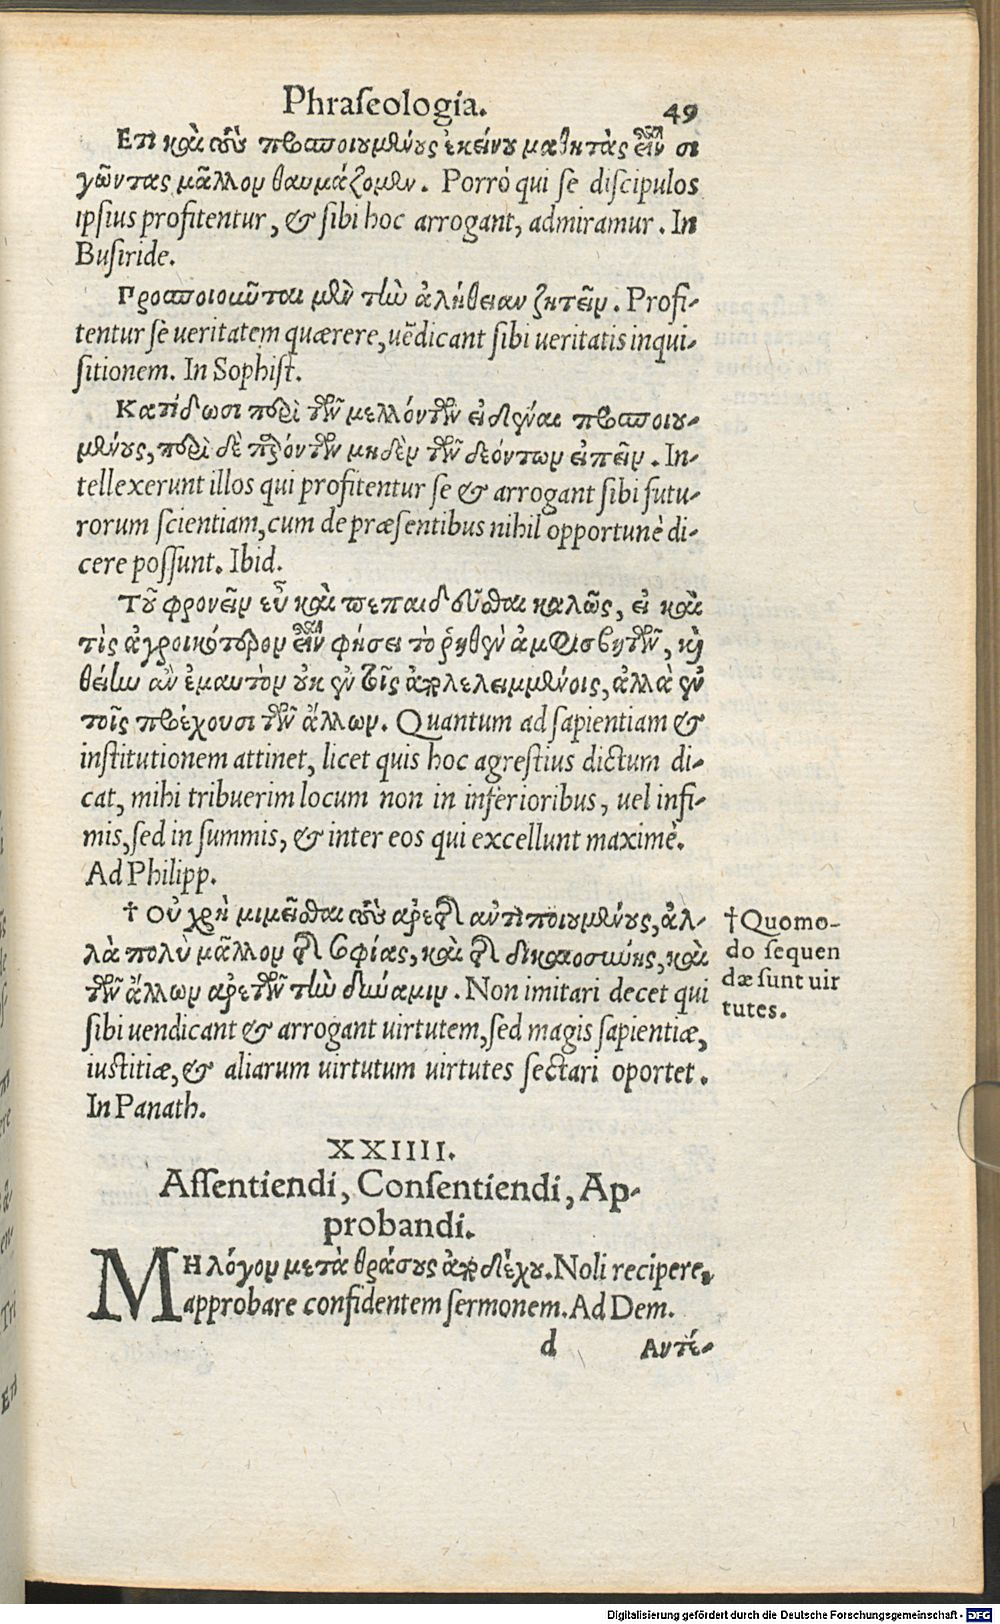 Phraſeologia. 49
Επὶ καὶ τοὺς προσποιουμένους ἐκείνου μαθητὰς εἶναι σι
γῶντας μᾶλλον θαυμάζομεν. Porrò qui ſe diſcipulos
ipſius profitentur, & ſibi hoc arrogant, admiramur. In
Buſiride.
Προσποιοῦνται μὲν τὴν ἀλήθειαν ζητεῖν. Profi-
tentur ſe veritatem quærere, uẽdicant ſibi ueritatis inqui-
ſitionem. In Sophiſt.
Κατίδωσι περὶ τῶν μελλόντων εἰδέναι προσποιου-
μένους, περὶ δὲ παρόντων μηδὲν τῶν δεόντων εἰπεῖν. In-
tellexerunt illos qui profitentur ſe & arrogant ſibi futu-
rorum ſcientiam, cum de præſentibus nihil opportunè di-
cere poſſunt. Ibid.
Τοῦ φρονεῖν εὖ καὶ πεπαιδεῦσθαι καλῶς, εἰ καὶ
τὶς ἀγροικότερον εἶναι φήσει τὸ ῥηθὲν ἀμφισβητῶ, καὶ
θείην ἂν ἐμαυτὸν οὐκ ἐν τοῖς ἀπολελειμμένοις, ἀλλὰ ἐν
τοῖς προέχουσι τῶν ἄλλων. Quantum ad ſapientiam &
inſtitutionem attinet, licet quis hoc agreſtius dictum di-
cat, mihi tribuerim locum non in inferioribus, uel infi-
mis, ſed in ſummis, & inter eos qui excellunt maximè.
Ad Philipp.
† Οὐ χρὴ μιμεῖσθαι τοὺς ἀρετῆς αὐτιποιουμένους, ἀλ-
λὰ πολὺ μᾶλλον τῆς σοφίας, καὶ τῆς δικαιοσύνης, καὶ
τῶν ἄλλων ἀρετῶν τὴν δύναμιν. Non imitari decet qui
ſibi uendicant & arrogant uirtutem, ſed magis ſapientiæ,
iuſtitiæ, & aliarum uirtutum uirtutes ſectari oportet.
In Panath.
† Quomo-
do ſequen
dæ ſunt uir
tutes.
XXIIII.
Aſſentiendi, Conſentiendi, Ap-
probandi.
ΜΗ λόγον μετὰ θράσους ἀποδέχου. Noli recipere,
approbare confidentem ſermonem. Ad Dem.
d Αντέ-
Digitalisierung gefördert durch die Deutsche Forschungsgemeinschaft - DFG